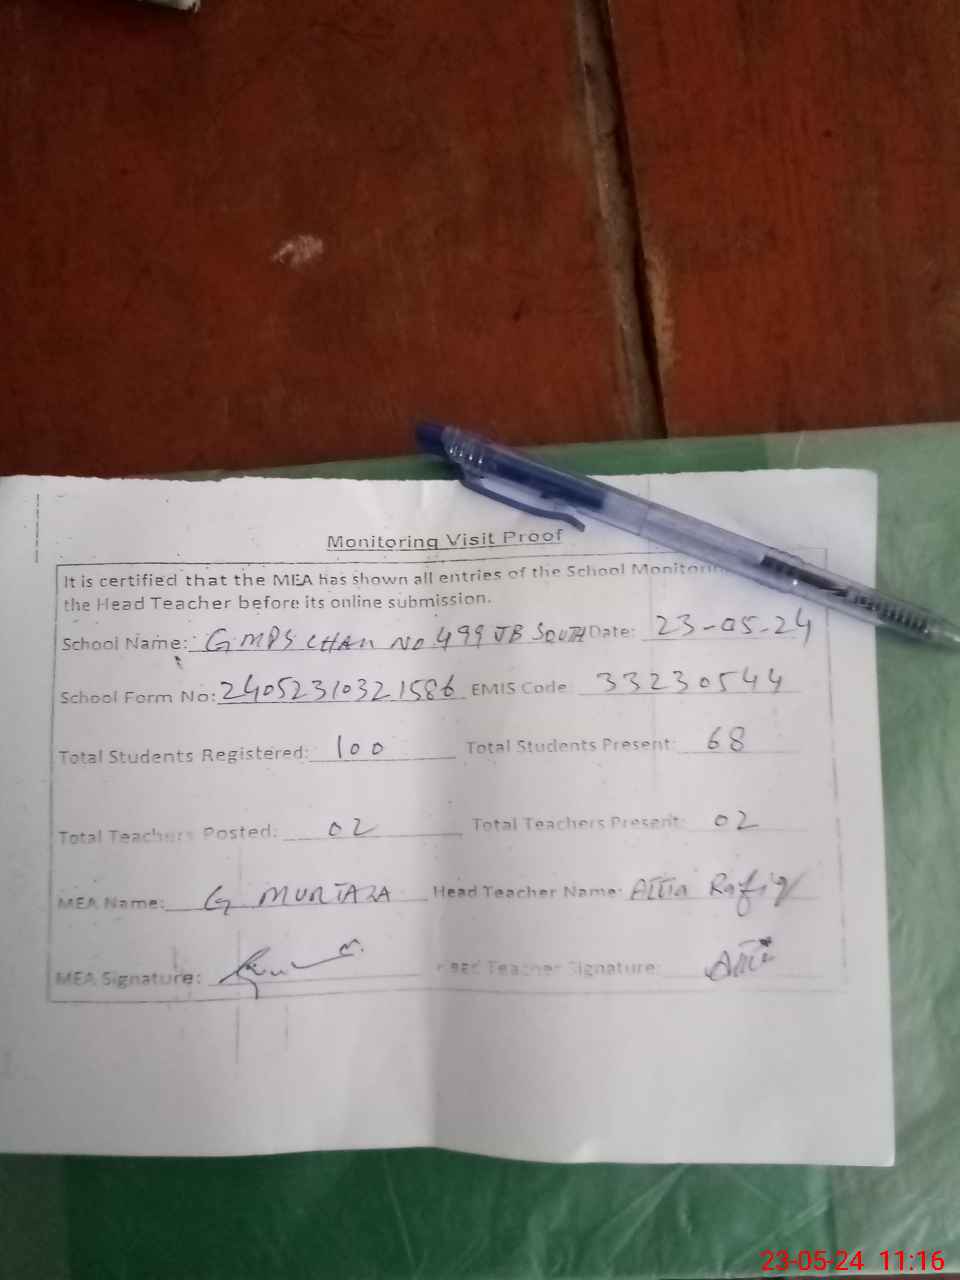 Monitoring Visit Proof
It is certified that the MEA has shown all entries of the School Monitorin
the Head Teacher before its online submission.
School Name: GMPS CHAK NO 499 JB SOUTH Date: 23-05-24
School Form No: 24052310321586 EMIS Code: 33230544
Total Students Registered: 100 Total Students Present: 68
Total Teachers Posted: 02 Total Teachers Present: 02
MEA Name: G MURTAZA Head Teacher Name: Attia Rafiq
MEA Signature: Head Teacher Signature: Attia
23-05-24 11:16